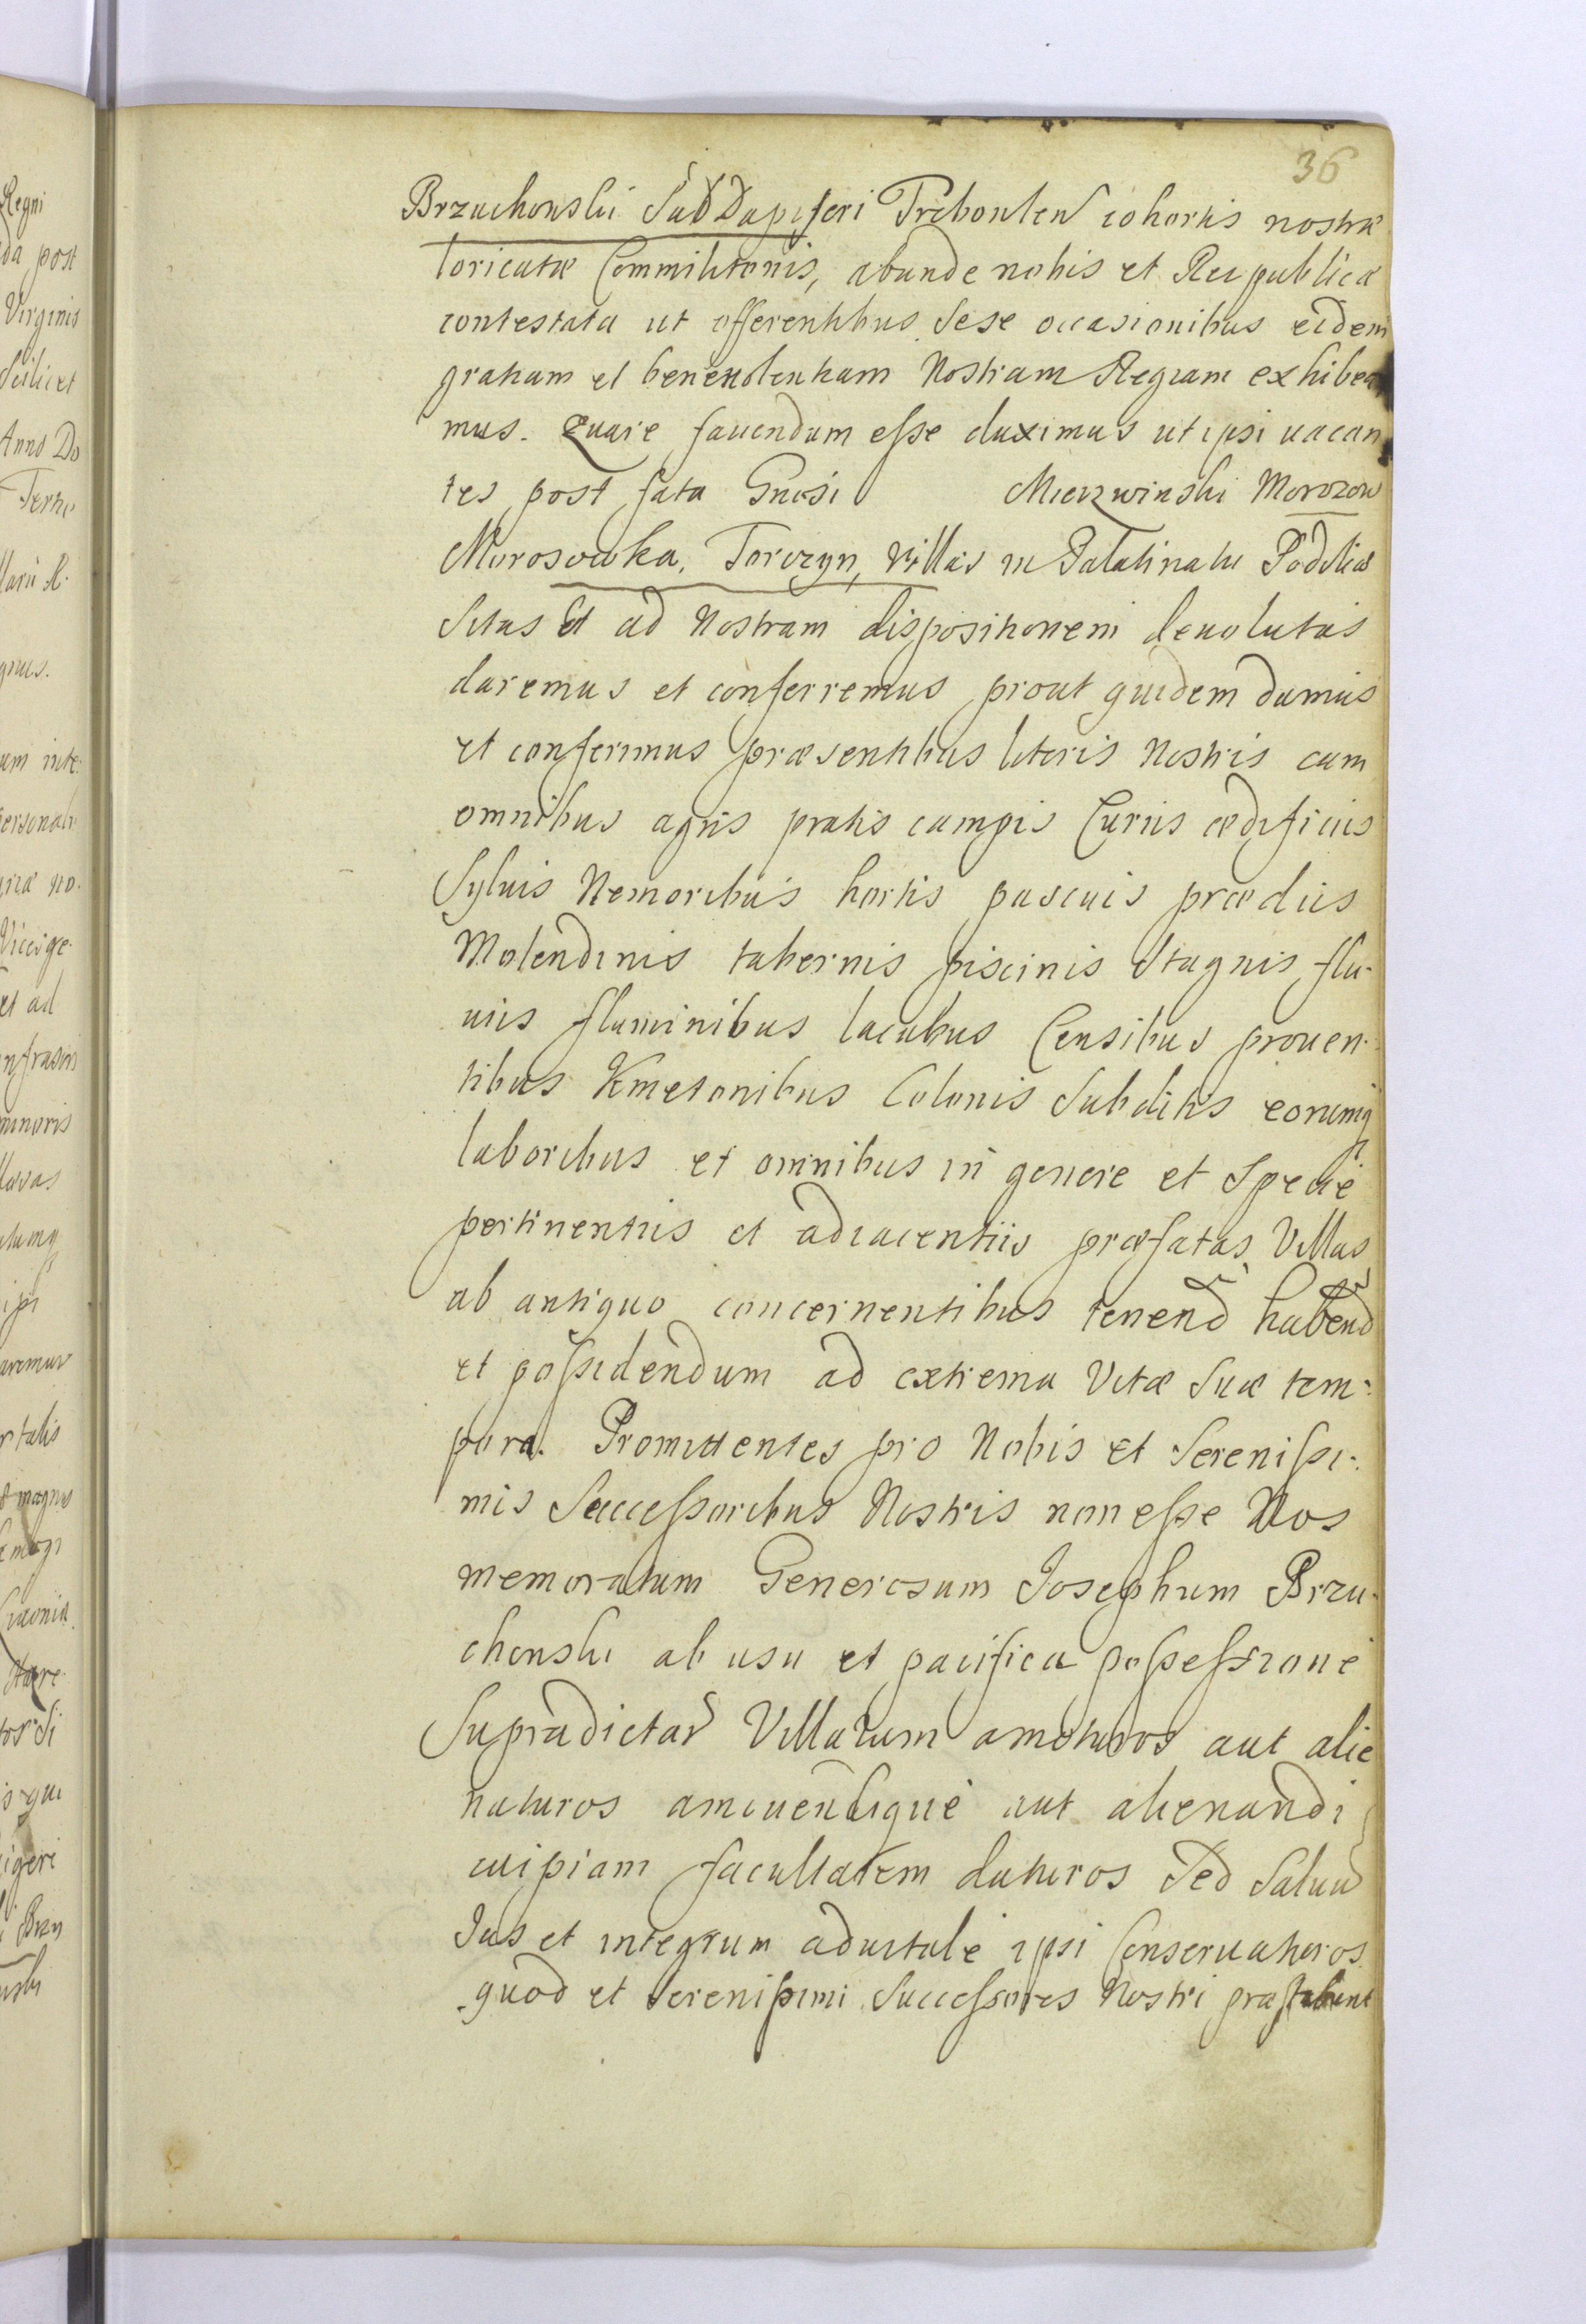 36
Brzuchonski SubDapiferi Trebowlen cohortis nostræ
loricatæ Commilitonis, abunde nobis et Reipublicæ
contestata ut offerentibus Sese occasionibus eidem
gratiam et beneuolentiam Nostram Regiam exhibea
mus. Quare fauendum esse duximus ut ipsi uacan
tes post fata Gnosi Mierzwinski Morozow
Morosowka, Torczyn, Villas in Palatinatu Podoliæ
Sitas Et ad Nostram dispositionem deuolutas
daremus et conferremus prout quidem damus
et conferimus præsentibus literis Nostris cum
omnibus agris pratis campis Curiis ædificiis
Syluis Nemoribus hortis pascuis prædiis
Molendinis tabernis piscinis Stagnis flu-
uiis fluminibus lacubus Censibus prouen-
tibus Kmetonibus Colonis Subditis eorumq
laboribus et omnibus in genere et Specie
pertinentiis et adiacentiis præfatas Villas
ab antiquo concernentibus tenend habend
et possidendum ad extrema Vitæ Suæ tem-
pora. Promittentes pro Nobis et Serenissi-
mis Successoribus Nostris non esse Nos
memoratum Generosum Josephum Brzu-
chonski ab usu et pacifica possessione
Supradictar Villarum amoturos aut alie
naturos amouendique aut alienandi
cuipiam facultatem daturos Sed Saluu
Jus et integrum aduitale ipsi Conseruaturos
quod et Serenissimi Successores Nostri præstabunt
Regni
da post
Virginis
Scilicet
Anno Do
um inte
personali
et ad
minoris
ipsi
magnus
is qui
igeri
Brzu